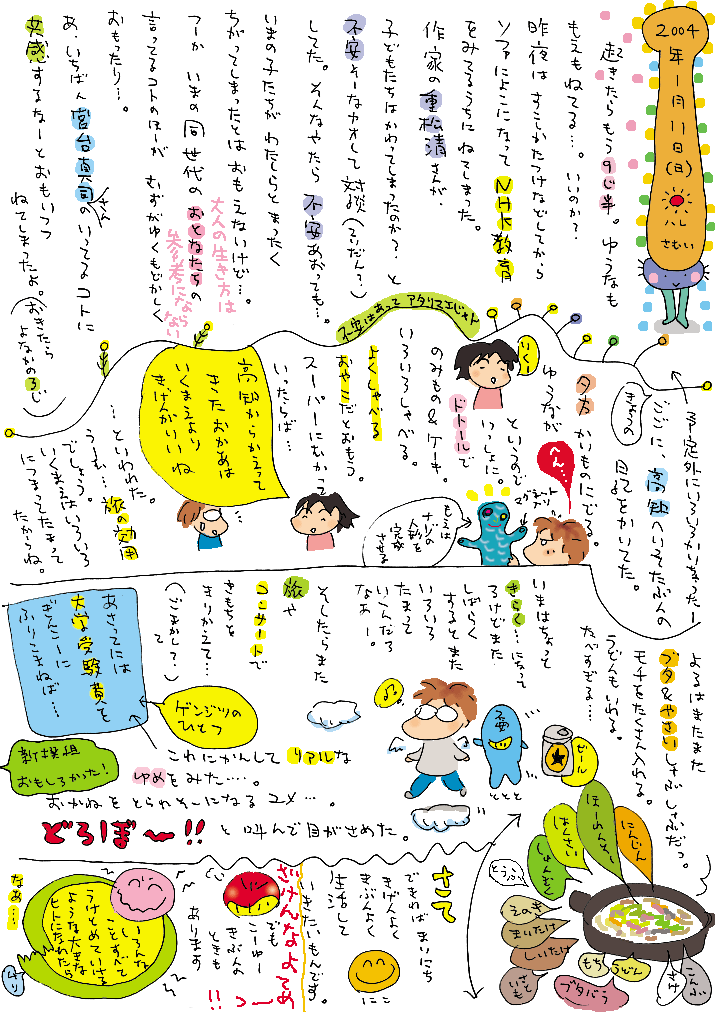 2004年1月11日(日)
ハレ
さむい
起きたらもう9じ半。ゆうなも
もえもねてる…。いいのか?
昨夜は すこしかたつけなどしてから
ソファによこになって NHK教育
をみてるうちに ねてしまった。
作家の重松清さんが、
子どもたちはかわってしまったのか?と
不安そーなカオして 対談(そうだん?)
してた。そんなやたら 不安あおっても…。
いまの子たちが わたしらとまったく
ちがってしまったとは おもえないけど…。
つーか いまの同世代の おとなたちの
大人の生き方は
参考にならない
言ってるコトのほーが むずがゆくもどかしく
おもったり…。
あ、いちばん 宮台真司さんのいってるコトに
共感するなーと おもいつつ
ねてしまったよ。(おきたら
よなかの3じ)
不安はあって アタリマエじゃん
予定外にいろいろかいちゃったー
きょうの
ごごに、高知へいそたぶんの
日記をかいてた。
夕方 かいものにでる。
ゆうなが
いくー
というので
いっしょに。
ドトールで
のみもの&ケーキ。
いろいろしゃべる。
よくしゃべる
おやこだとおもう。
スーパーにむかって
いったらば…
高知からかえって
きたおかあは
いくまえより
きげんがいいね
…といわれた。
うーむ…旅の効用
でしょう。
いくまえはいろいろ
につまってたまって
たからね。
へん…
もえは
ナゾの
人形を
完成
させる
マグネット
いまはちょっと
きらく…になって
るけどまた
しばらく
するとまた
いろいろ
たまって
いくんだろ
なぁー。
そしたらまた
旅や
コンサートで
きもちを
きりかえて…
(ごまかして?)
あさってには
大学受験費を
ぎんこーに
ふりこまねば…
ゲンジツの
ひとつ
これにかんして リアルな
ゆめをみた…。
おかねを とられそーになる ユメ…。
どろぼ〜!! と叫んで目がさめた。
新撰組
おもしろかった!
憂
ととと
ビール
よるはまたまた
ブタ&やさいしゃぶしゃぶだっ。
モチをたくさん入れる。
うどんもいれる。
たべすぎる…
とうふ
しゅんぎく
はくさい
ほーれんそー
にんじん
えのき
まいたけ
しいたけ
さといも
もち
ブタバラ
うどん
さけ
こんぶ
さて
できればまいにち
きげんよく
きぶんよく
生活して
いきたいもんです。
にこ
ざけんなよてめ
〜っ!!
でも
こーゆー
きぶんの
ときも
あります
いろんな
ことすべて
うけとめていける
ような大きな
ヒトになれたら
なぁ…
ムリ